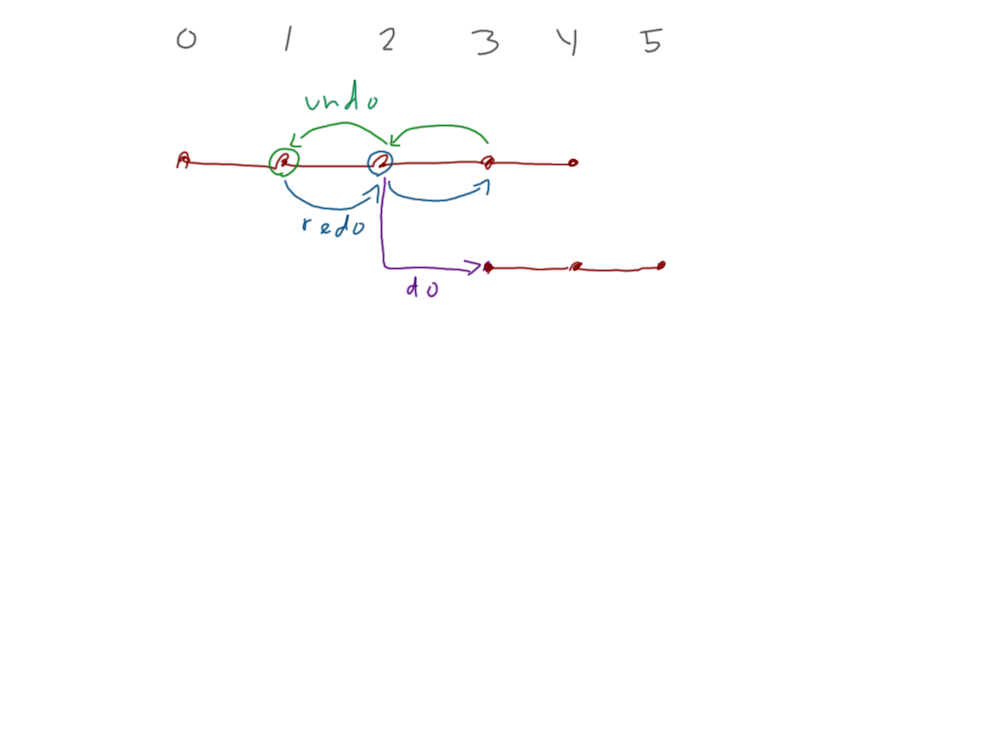 0 1 2 3 4 5
undo
redo
do